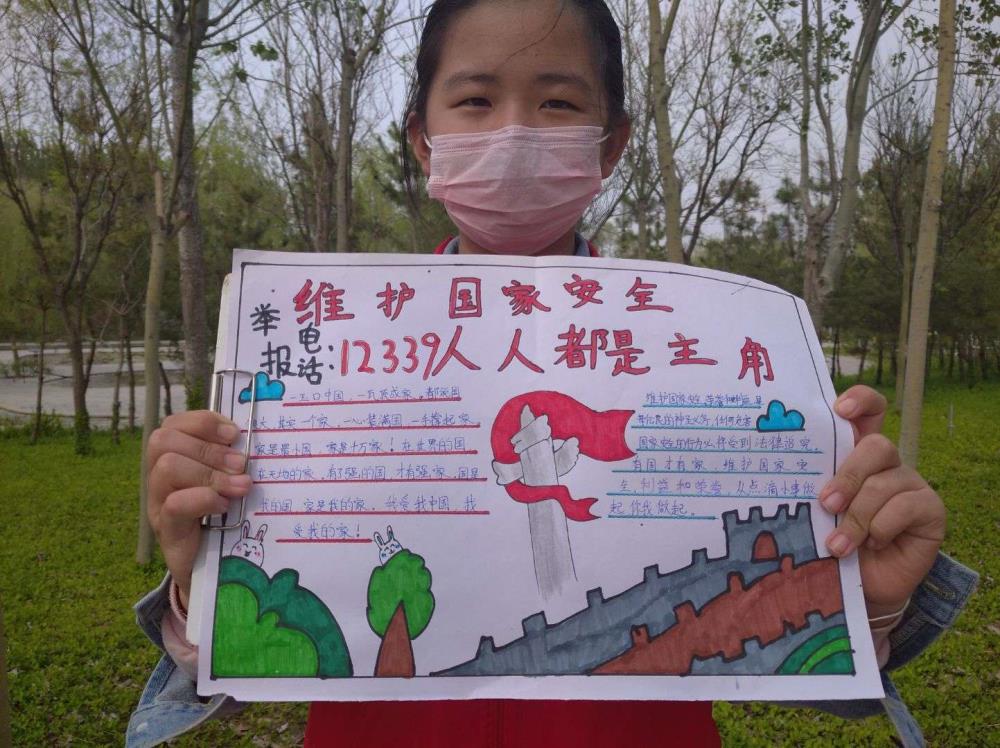 维护国家安全
举报电话:12339人人都是主角
一玉口中国,一瓦顶成家,都说国
大,其实一个家,一心装满国,一手撑起家,
家是最小国,家是千万家!在世界的国,
在天地的家,有了强的国,才有强家,国是
我的国,家是我的家,我爱我中国,我
爱我的家!
维护国家安
国家安的行为必将受到法律追究。
有国才有家,维护国家安
全、利益和荣誉,从点滴小事做
起,你我做起。